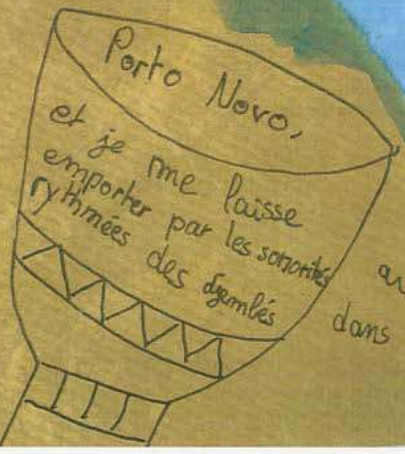 Porto Novo,
et je me laisse
emporter par les sonorités
rythmées des djembés
dans